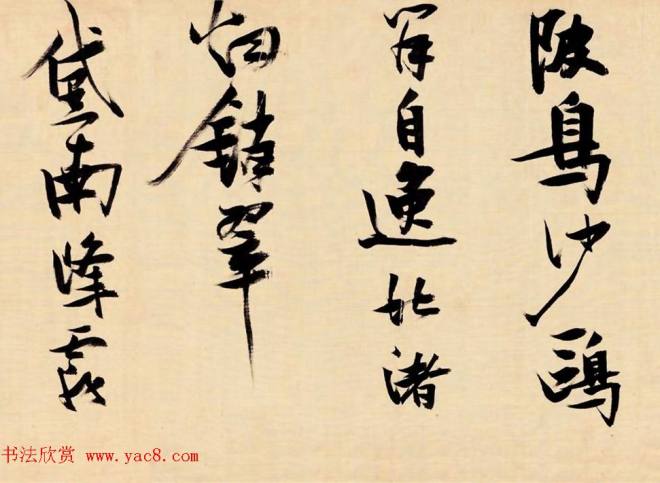 陂鳧沙鷗
自逸北渚
烟鎖翠
黛南峰
书法欣赏 www.yac8.com